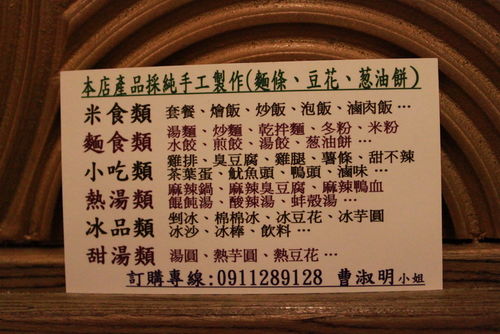 本店產品採純手工製作(麵條、豆花、葱油餅)
米食類 套餐、燴飯、炒飯、泡飯、滷肉飯…
麵食類 湯麵、炒麵、乾拌麵、冬粉、米粉
水餃、煎餃、湯餃、葱油餅…
小吃類 雞排、臭豆腐、雞腿、薯條、甜不辣
茶葉蛋、魷魚頭、鴨頭、滷味…
熱湯類 麻辣鍋、麻辣臭豆腐、麻辣鴨血
餛飩湯、酸辣湯、蚌殼湯…
冰品類 剉冰、棉棉冰、冰豆花、冰芋圓
冰沙、冰棒、飲料…
甜湯類 湯圓、熱芋圓、熱豆花…
訂購專線:0911289128 曹淑明小姐